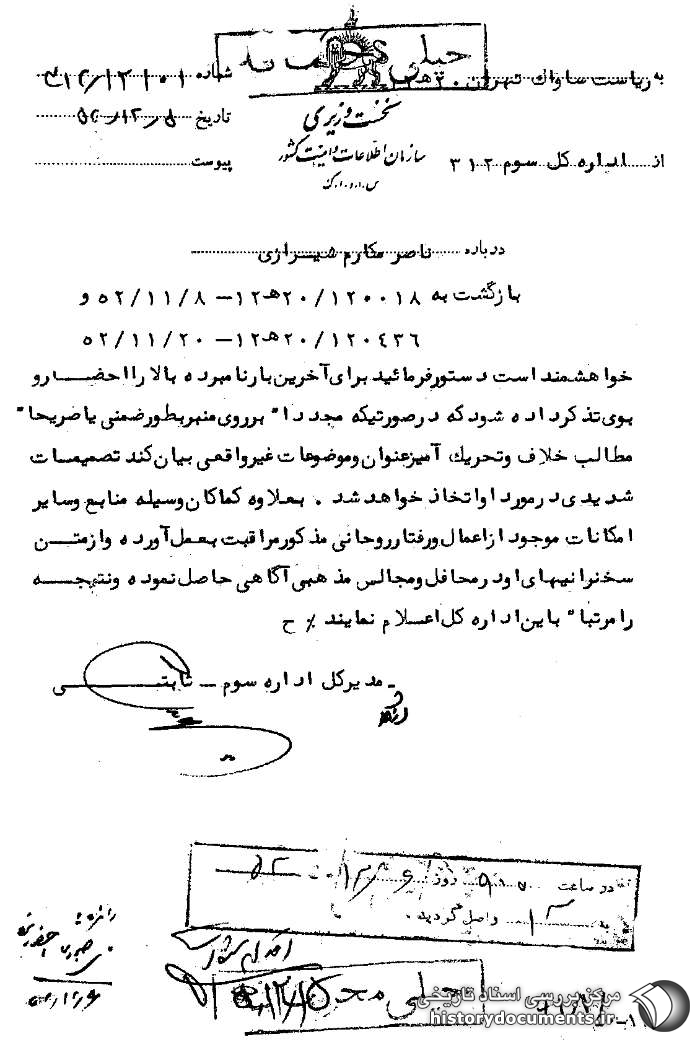 خیلی محرمانه
به ریاست ساواک تهران ۲۰ ﻫ ۱۲
شماره
نخست وزیری
تاریخ
سازمان اطلاعات و امنیت کشور
از اداره کل سوم ۳۱۲
پیوست
س.ا.و.ا.ک
درباره ناصر مکارم شیرازی
بازگشت به ۲۰/۱۲۰۰۱۸ﻫ۱۲ – ۵۲/۱۱/۸ و
۲۰/۱۲۰۴۳۶ﻫ۱۲ – ۵۲/۱۱/۲۰
خواهشمند است دستور فرمائید برای آخرین بار نامبرده بالا را احضار و
بوی تذکر داده شود که در صورتیکه مجددا" بر روی منبر بطور ضمنی یا صریحا"
مطالب خلاف و تحریک آمیز عنوان و موضوعات غیر واقعی بیان کند تصمیمات
شدیدی در مورد او اتخاذ خواهد شد . بعلاوه کماکان وسیله منابع و سایر
امکانات موجود از اعمال و رفتار روحانی مذکور مراقبت بعمل آورده و از متن
سخنرانیهای او در محافل و مجالس مذهبی آگاهی حاصل نموده و نتیجه
را مرتبا" باین اداره کل اعلام نمایند ٪ ح
مدیر کل اداره سوم – ثابتی
در ساعت روز
به واصل گردید .
اقدام شد
خیلی محرمانه
مرکز بررسی اسناد تاریخی
historydocuments.ir